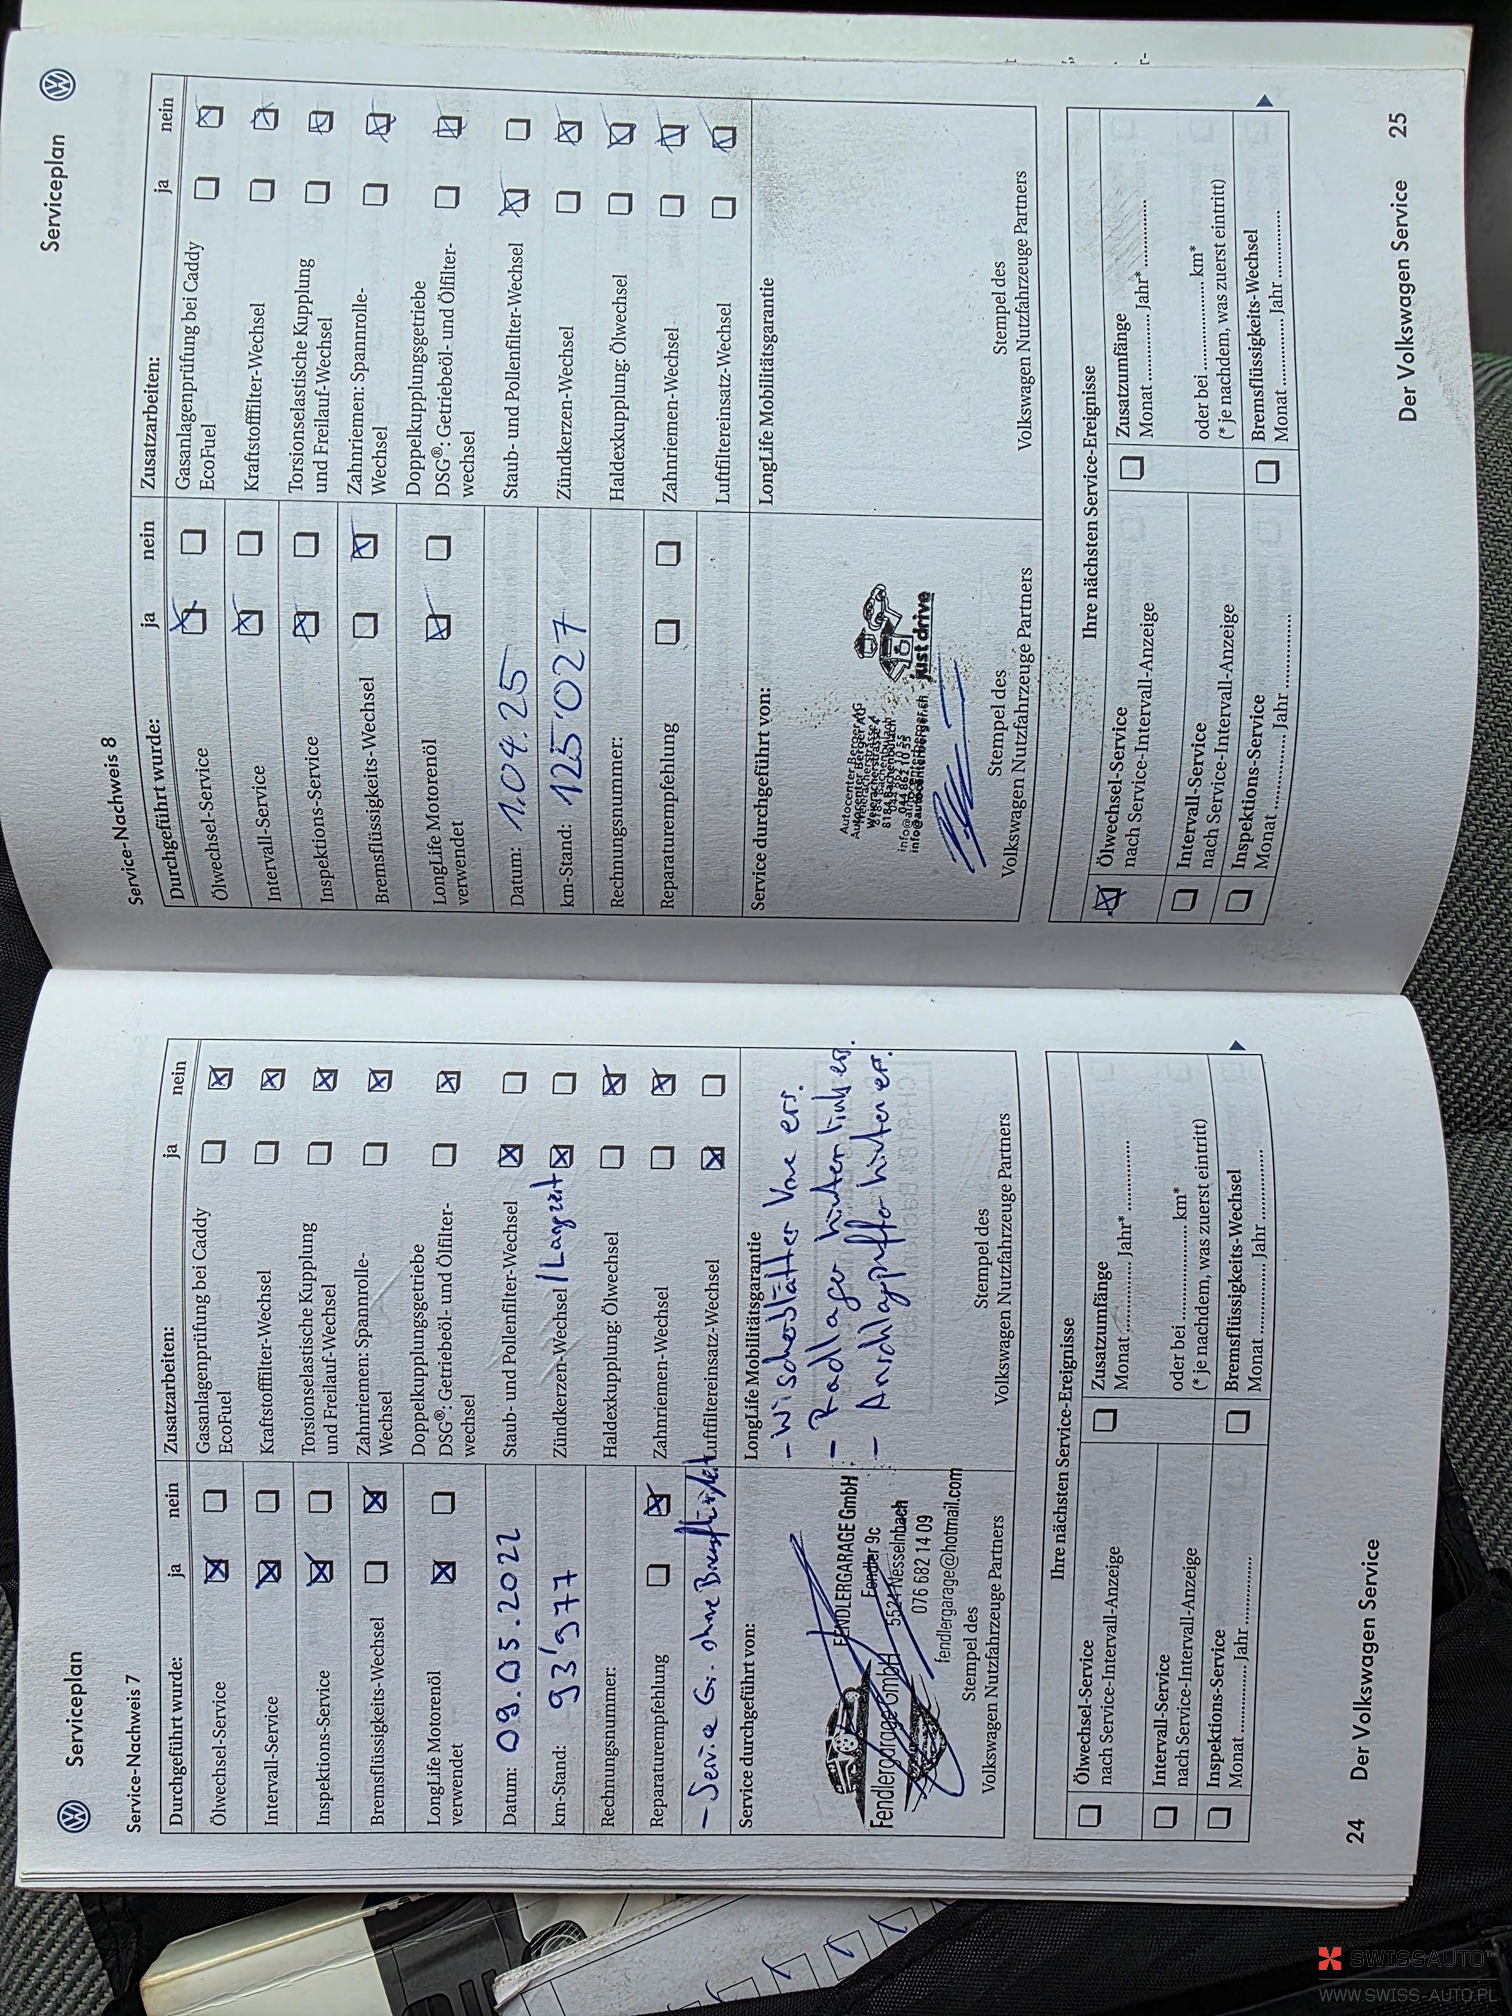 Serviceplan
Service-Nachweis 7
Durchgeführt wurde: ja nein
Ölwechsel-Service
Intervall-Service
Inspektions-Service
Bremsflüssigkeits-Wechsel
LongLife Motorenöl
verwendet
Datum: 09.05.2022
km-Stand: 93'977
Rechnungsnummer:
Reparaturempfehlung
- Service Gr. ohne Bremsflüssigkeit
Service durchgeführt von:
FENDLERGARAGE GmbH
Fendler 9c
5524 Nesselnbach
076 682 14 09
fendlergarage@hotmail.com
Fendlergarage GmbH
Stempel des
Volkswagen Nutzfahrzeuge Partners
Zusatzarbeiten: ja nein
Gasanlagenprüfung bei Caddy
EcoFuel
Kraftstofffilter-Wechsel
Torsionselastische Kupplung
und Freilauf-Wechsel
Zahnriemen: Spannrolle-
Wechsel
Doppelkupplungsgetriebe
DSG®: Getriebeöl- und Ölfilter-
wechsel
Staub- und Pollenfilter-Wechsel
Zündkerzen-Wechsel / Langzeit
Haldexkupplung: Ölwechsel
Zahnriemen-Wechsel
Luftfiltereinsatz-Wechsel
LongLife Mobilitätsgarantie
- Wischerblätter Vorne ers.
- Radlager hinten links ers.
- Anschlagpuffer hinten er.
Stempel des
Volkswagen Nutzfahrzeuge Partners
Ihre nächsten Service-Ereignisse
Ölwechsel-Service
nach Service-Intervall-Anzeige
Intervall-Service
nach Service-Intervall-Anzeige
Inspektions-Service
Monat ............ Jahr ............
Zusatzumfänge
Monat ............ Jahr* ............
oder bei ............ km*
(* je nachdem, was zuerst eintritt)
Bremsflüssigkeits-Wechsel
Monat ............ Jahr ............
24 Der Volkswagen Service
Serviceplan
Service-Nachweis 8
Durchgeführt wurde: ja nein
Ölwechsel-Service
Intervall-Service
Inspektions-Service
Bremsflüssigkeits-Wechsel
LongLife Motorenöl
verwendet
Datum: 1.04.25
km-Stand: 125'027
Rechnungsnummer:
Reparaturempfehlung
Service durchgeführt von:
Autocenter Berger AG
Weiacherstrasse 4
8184 Bachenbülach
044 862 10 55
info@autocenterberger.ch
just drive
Stempel des
Volkswagen Nutzfahrzeuge Partners
Zusatzarbeiten: ja nein
Gasanlagenprüfung bei Caddy
EcoFuel
Kraftstofffilter-Wechsel
Torsionselastische Kupplung
und Freilauf-Wechsel
Zahnriemen: Spannrolle-
Wechsel
Doppelkupplungsgetriebe
DSG®: Getriebeöl- und Ölfilter-
wechsel
Staub- und Pollenfilter-Wechsel
Zündkerzen-Wechsel
Haldexkupplung: Ölwechsel
Zahnriemen-Wechsel
Luftfiltereinsatz-Wechsel
LongLife Mobilitätsgarantie
Stempel des
Volkswagen Nutzfahrzeuge Partners
Ihre nächsten Service-Ereignisse
Ölwechsel-Service
nach Service-Intervall-Anzeige
Intervall-Service
nach Service-Intervall-Anzeige
Inspektions-Service
Monat ............ Jahr ............
Zusatzumfänge
Monat ............ Jahr* ............
oder bei ............ km*
(* je nachdem, was zuerst eintritt)
Bremsflüssigkeits-Wechsel
Monat ............ Jahr ............
Der Volkswagen Service 25
SWISSAUTO
WWW.SWISS-AUTO.PL